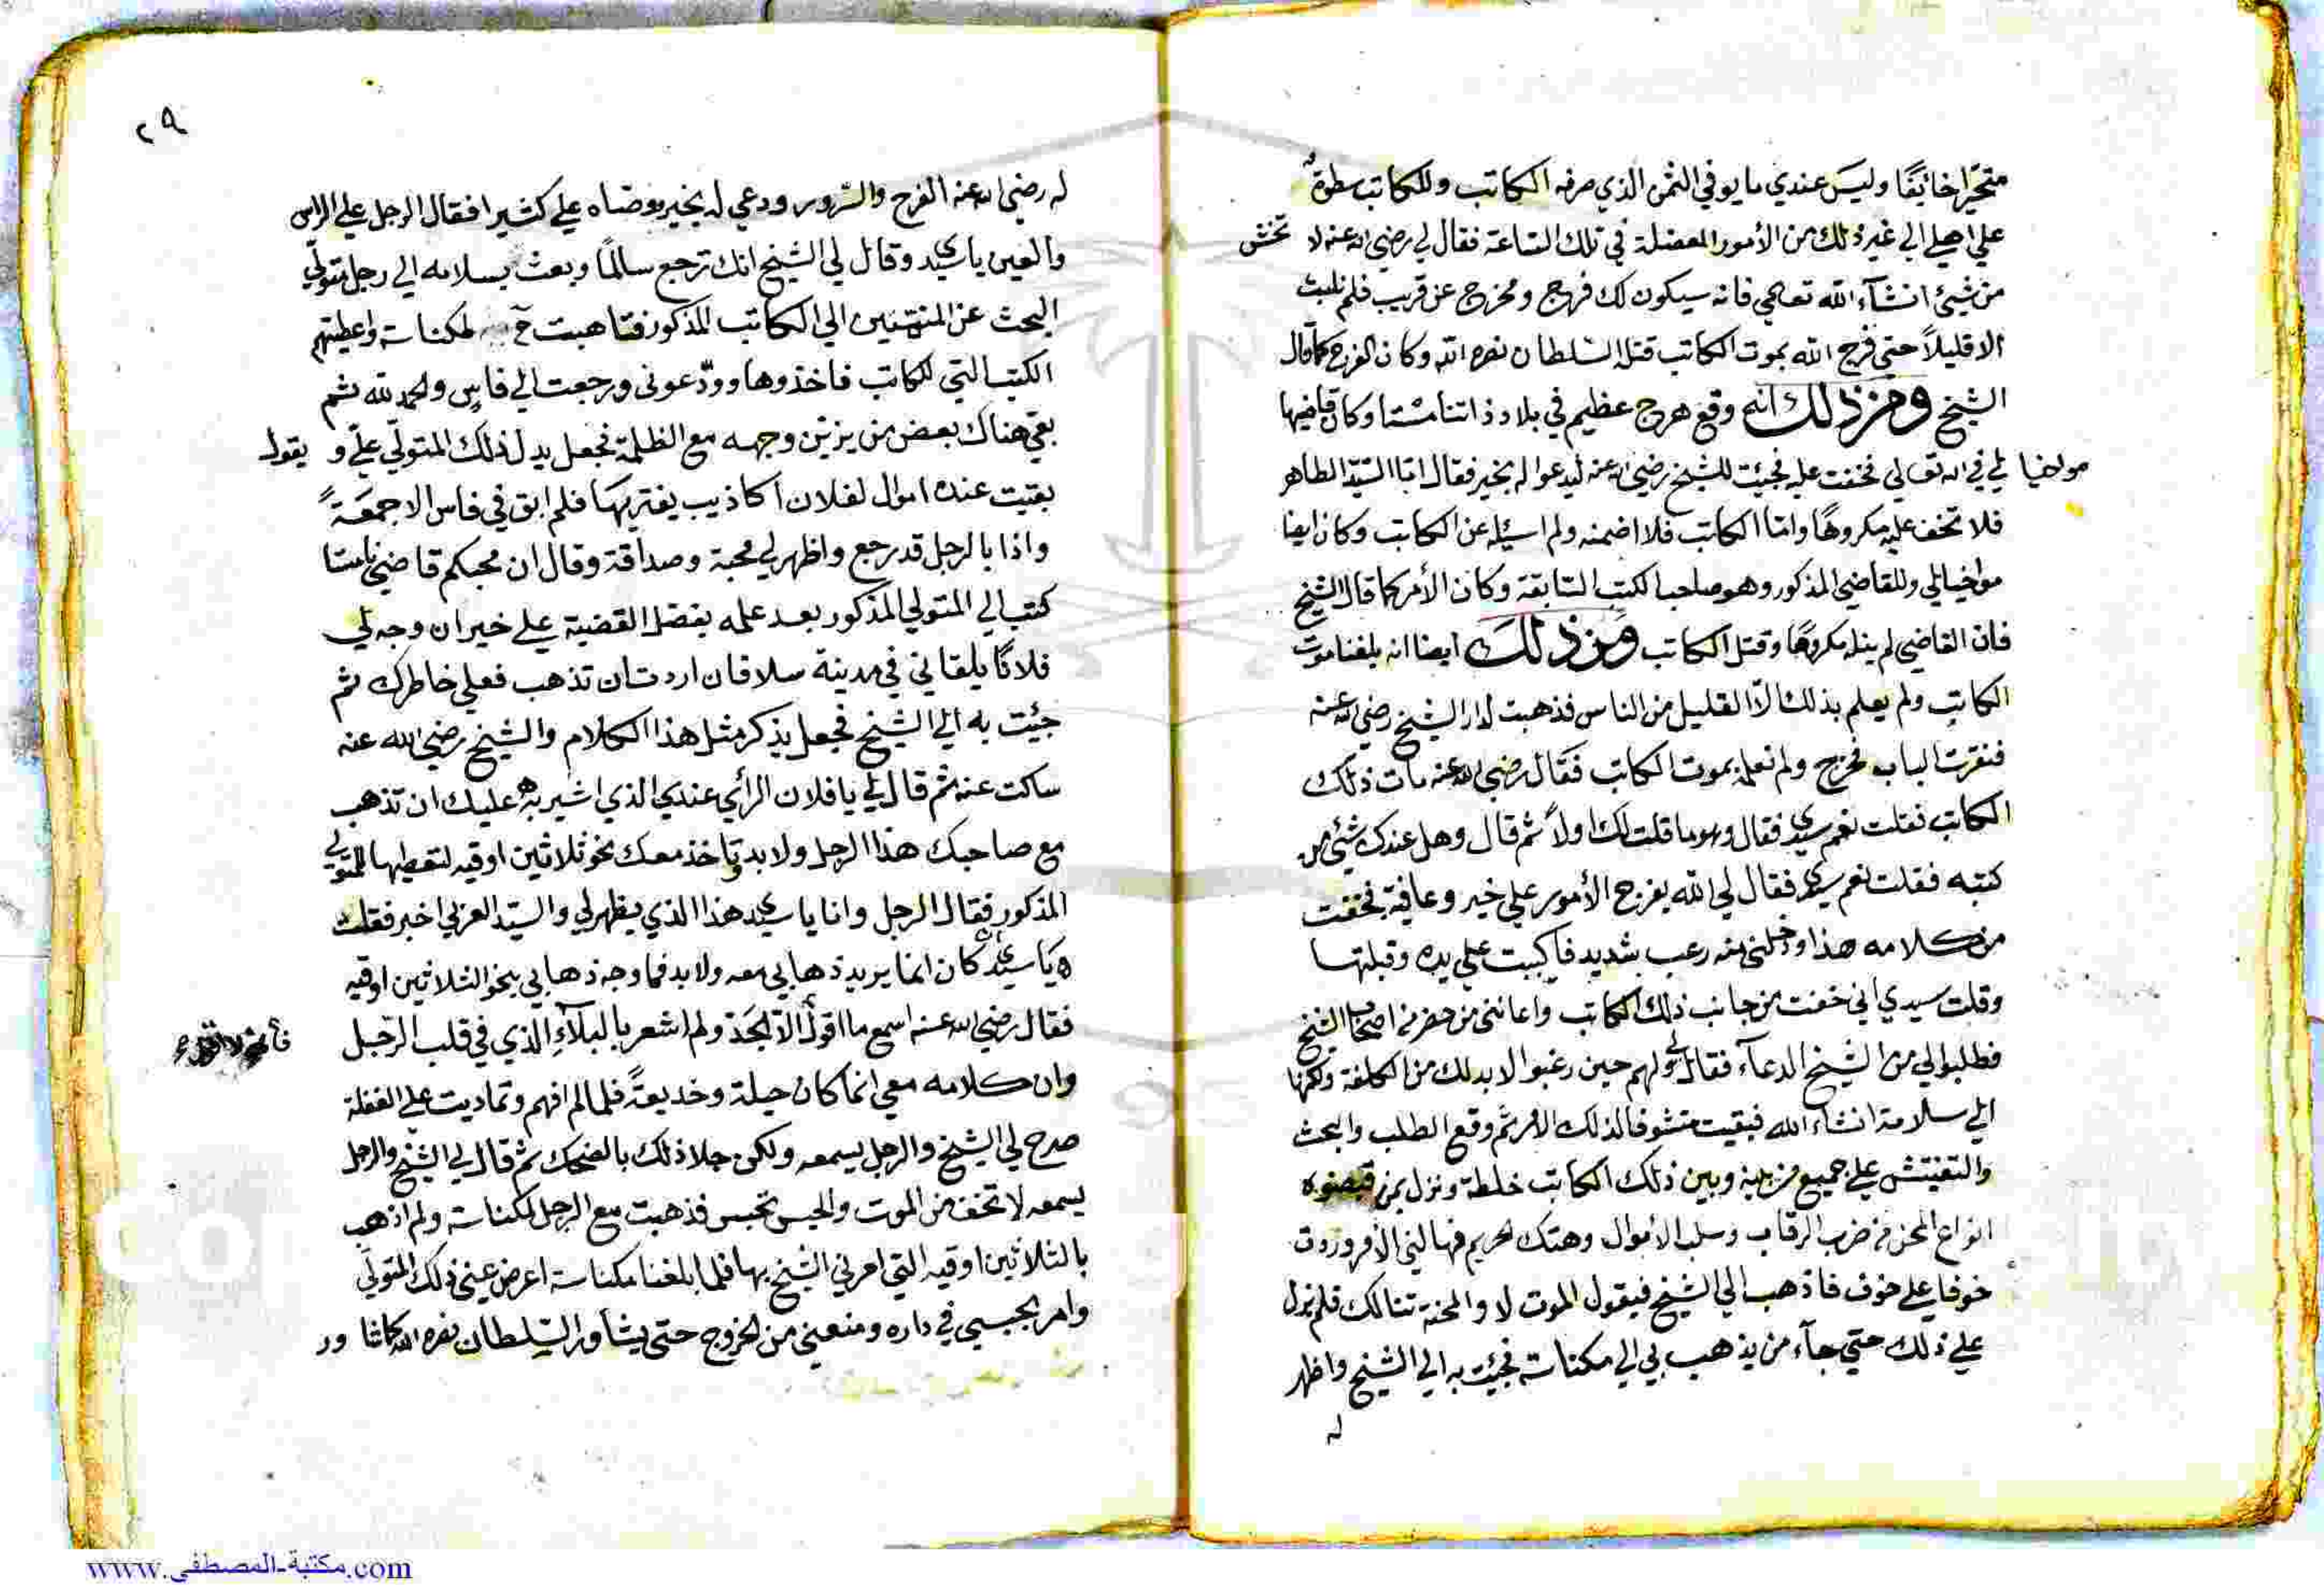 متحيرا خائفا وليس عندي ما يوفي الثمن الذي صرفه الكاتب وللكاتب سطوة
علي اهلي الي غير ذلك من الأمور المعضلة في تلك الساعة فقال لي رضي الله عنه لا تخش
من شيئ انشآء الله تعالي فانه سيكون لك فرج ومخرج عن قريب فلم نلبث
الا قليلاً حتي فرج الله بموت الكاتب قتله السلطان نصره الله وكان الفرج كما قال
الشيخ ومن ذلك انه وقع هرج عظيم في بلاد ذاتنا مستا وكان قاضيها
مواخيا لي في الله تعالي فخفت عليه فجئت للشيخ رضي الله عنه ليدعوا له بخير فقال اما السيد الطاهر
فلا تخف عليه مكروهًا واما الكاتب فلا اضمنه ولم اسئله عن الكاتب وكان ايضا
مواخيا لي وللقاضي المذكور وهو صاحب الكتب السابقة وكان الأمر كما قال الشيخ
فان القاضي لم ينله مكروهًا وقتل الكاتب ومن ذلك ايضا انه بلغنا موت
الكاتب ولم يعلم بذلك الّا القليل من الناس فذهبت لدار الشيخ رضي الله عنه
فنقرت الباب فخرج ولم نعلمه بموت الكاتب فقال رضي الله عنه مات ذلك
الكاتب فقلت نعم سيدي فقال وهو ما قلت لك اولاً ثم قال وهل عندك شيئ من
كتبه فقلت نعم سيدي فقال لي الله يفرج الأمور علي خير وعافية فخفت
من كلامه هذا ودخلني منه رعب شديد فاكببت علي يده وقبلتها
وقلت سيدي اني خفت من جانب ذلك الكاتب واعانني من حضر من اصحاب الشيخ
فطلبوا لي من الشيخ الدعآء فقال لي ولهم حين رغبوا لا بد لك من الكلفة ولكنها
الي سلامة انشاء الله فبقيت متشوفا لذلك الأمر ثم وقع الطلب والبحث
والتفتيش علي جميع من بينه وبين ذلك الكاتب خلطة ونزل بمن قبضوه
انواع المحن من ضرب الرقاب وسلب الأموال وهتك الحريم فهالني الأمر وزدت
خوفا علي خوف فاذهب الي الشيخ فيقول الموت لا والمحنة تنالك فلم نزل
علي ذلك حتي جآء من يذهب بي الي مكناسة فجئت به الي الشيخ واظهر
له
٢٩
له رضي الله عنه الفرح والسرور ودعي له بخير بوضاه علي كثيرا فقال الرجل علي الراس
والعين يا سيدي وقال لي الشيخ انك ترجع سالمًا وبعث بسلامه الي رجل متولّي
البحث عن المنتمين الي الكاتب المذكور فتاهبت مكناسة واعطيتهم
الكتب التي للكاتب فاخذوها وودّعوني ورجعت الي فاس والحمد لله ثم
بقي هناك بعض من يزين وجهه مع الظلمة فجعل يدل ذلك المتولّي علّي ويقول
بقيت عنده اموال لفلان اكاذيب يفتريها فلم ابق في فاس الا جمعةً
واذا بالرجل قد رجع واظهر لي محبة وصداقة وقال ان محبكم قاضي تامستا
كتب الي المتولي المذكور بعد علمه بفصل القضية علي خير ان وجه لي
فلانًا يلقاني في مدينة سلا فان اردت ان تذهب فعلي خاطرك ثم
جئت به الي الشيخ فجعل يذكر مثل هذا الكلام والشيخ رضي الله عنه
ساكت عنه ثم قال لي يا فلان الرأي عندي الذي اشير به عليك ان تذهب
مع صاحبك هذا الرجل ولا بد وتاخذ معك نحو ثلاثين اوقيه لتعطيها للمتولي
المذكور فقال الرجل وانا يا سيدي هذا الذي يظهر لي والسيد العربي اخبر فقلت
يا سيدي ان كان انما يريد ذهابي معه ولا بد فما وجه ذهابي بنحو الثلاثين اوقيه
فقال رضي الله عنه اسمع ما اقول لا الجد ولم اشعر بالبلآء الذي في قلب الرجل
وان كلامه معي انما كان حيلة وخديعةً فلما لم افهم وتماديت علي الغفلة
صرح لي الشيخ والرجل يسمعه ولكن خلا ذلك بالضحك ثم قال لي الشيخ والرجل
يسمعه لا تخف من الموت والحبس تحبس فذهبت مع الرجل لمكناسة ولم اذهب
بالثلاثين اوقيه التي امرني الشيخ بها فلما بلغنا مكناسة اعرض عني ذلك المتولّي
وامر بحبسي في داره ومنعني من الخروج حتي يشاور السلطان نصره الله
www.مكتبة-المصطفى.com